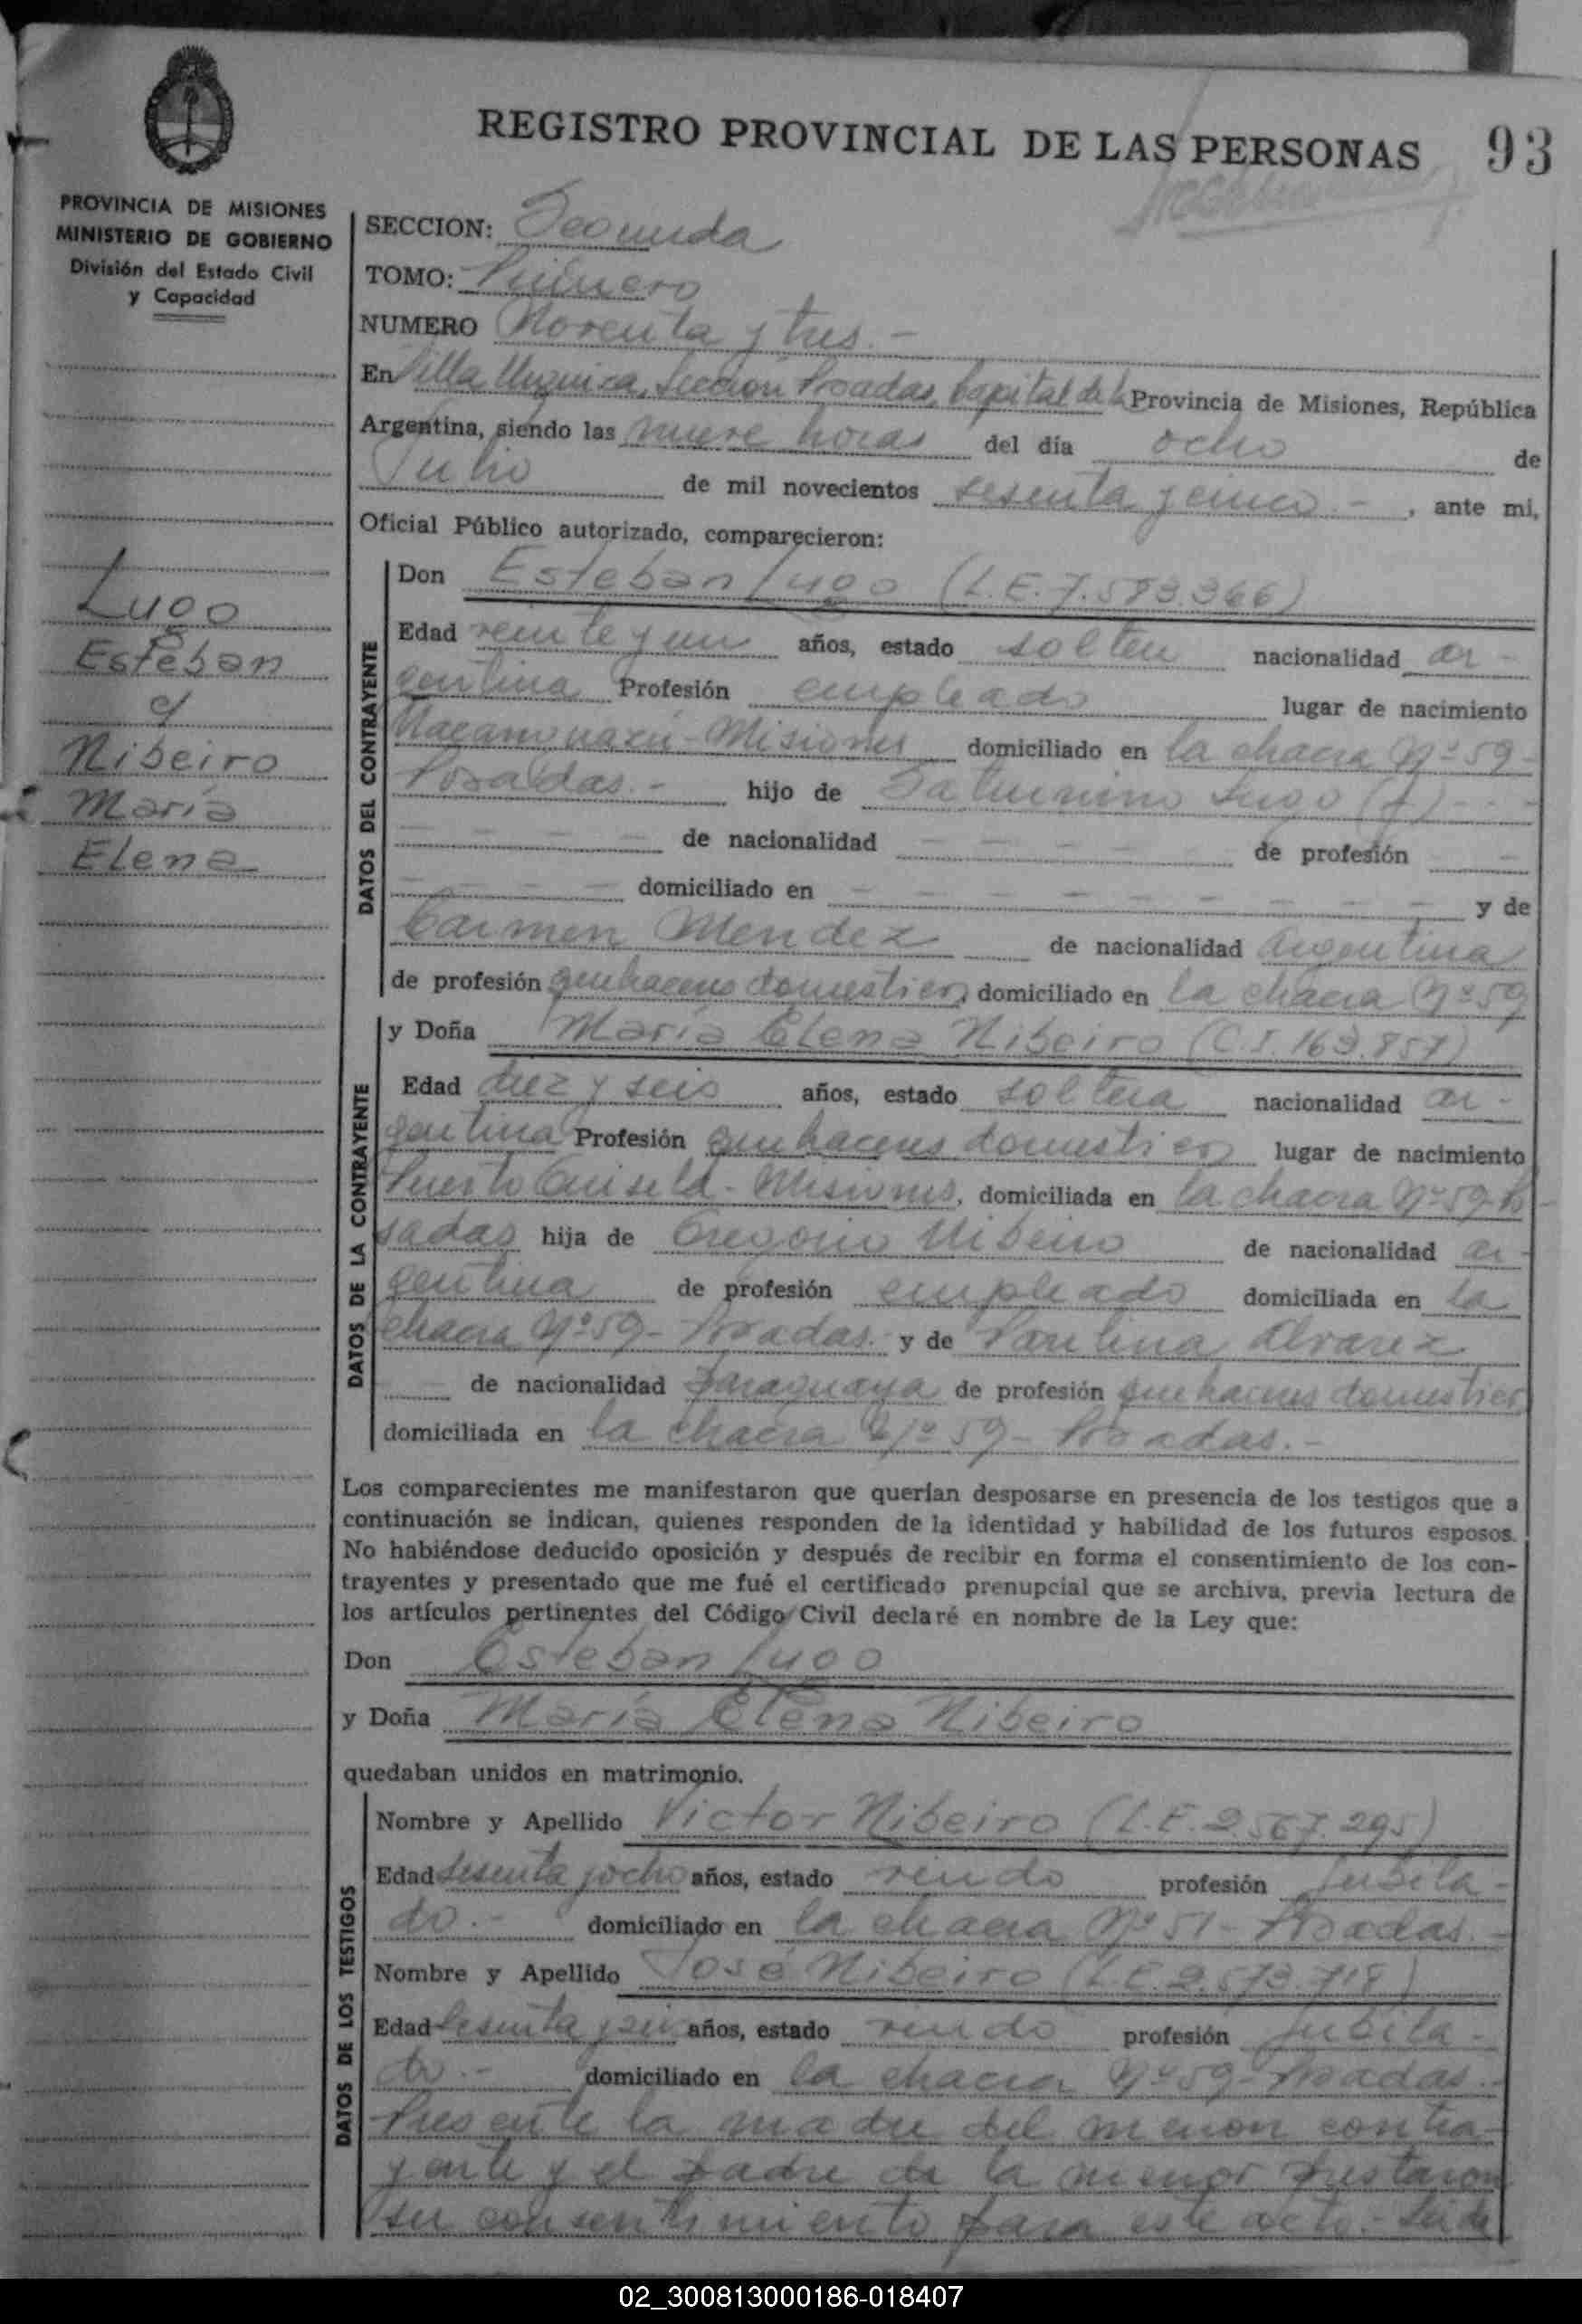 REGISTRO PROVINCIAL DE LAS PERSONAS 93
PROVINCIA DE MISIONES
MINISTERIO DE GOBIERNO
División del Estado Civil
y Capacidad
Lugo
Esteban
c/
Ribeiro
María
Elena
SECCION: Segunda
TOMO: Primero
NUMERO Noventa y tres.-
En Villa Urquiza, Sección Posadas, Capital de la Provincia de Misiones, República
Argentina, siendo las nueve horas del día ocho de
Julio de mil novecientos sesenta y cinco.- , ante mi,
Oficial Público autorizado, comparecieron:
DATOS DEL CONTRAYENTE
Don Esteban Lugo (L.E. 7.583.366)
Edad veinte y un años, estado soltero nacionalidad ar-
gentina Profesión empleado lugar de nacimiento
Ñacanguazú - Misiones domiciliado en la chacra Nº 59-
Posadas.- hijo de Saturnino Lugo (f) - - -
- - - - - de nacionalidad - - - - - de profesión - -
- - - - domiciliado en - - - - - - - y de
Carmen Mendez de nacionalidad argentina
de profesión quehaceres domesticos domiciliado en la chacra Nº 59
DATOS DE LA CONTRAYENTE
y Doña María Elena Ribeiro (C.I. 163.857)
Edad diez y seis años, estado soltera nacionalidad ar-
gentina Profesión quehaceres domesticos lugar de nacimiento
Puerto Gisela - Misiones, domiciliada en la chacra Nº 59-Po-
sadas hija de Gregorio Ribeiro de nacionalidad ar-
gentina de profesión empleado domiciliada en la
chacra Nº 59- Posadas.- y de Paulina Alvarez
de nacionalidad paraguaya de profesión quehaceres domesticos
domiciliada en la chacra Nº 59 - Posadas.-
Los comparecientes me manifestaron que querían desposarse en presencia de los testigos que a
continuación se indican, quienes responden de la identidad y habilidad de los futuros esposos.
No habiéndose deducido oposición y después de recibir en forma el consentimiento de los con-
trayentes y presentado que me fué el certificado prenupcial que se archiva, previa lectura de
los artículos pertinentes del Código Civil declaré en nombre de la Ley que:
Don Esteban Lugo
y Doña María Elena Ribeiro
quedaban unidos en matrimonio.
DATOS DE LOS TESTIGOS
Nombre y Apellido Victor Ribeiro (L.E. 2.567.295)
Edad sesenta y ocho años, estado viudo profesión jubila-
do.- domiciliado en la chacra Nº 51 - Posadas.-
Nombre y Apellido José Ribeiro (L.E. 2.573.718)
Edad sesenta y seis años, estado viudo profesión jubila-
do.- domiciliado en la chacra Nº 59- Posadas.-
Presente la madre del menor contra-
yente y el padre de la menor prestaron
su consentimiento para este acto.- Leída
02_300813000186-018407